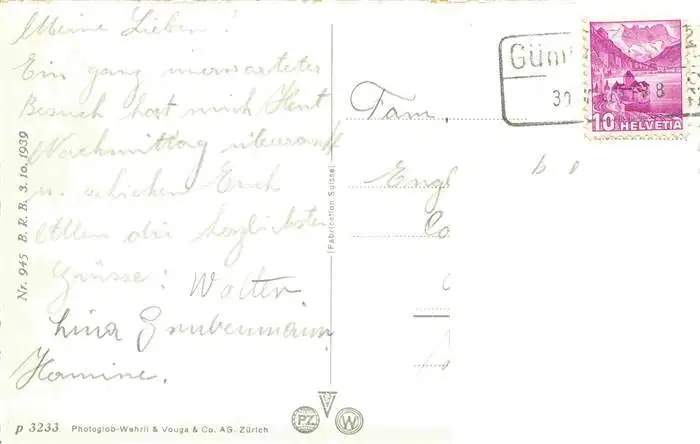 Meine Lieben!
Ein ganz unerwarteter
Besuch hat mich Heut
Nachmittag überrascht
u. schicken Euch
Allen die herzlichsten
Grüsse: Walter
Lina
Fam.
Güm
39
8
10 HELVETIA
Nr. 945 B. R. B. 3. 10. 1939
(Fabrication Suisse)
p 3233 Photoglob-Wehrli & Vouga & Co. AG. Zürich
PZ V W